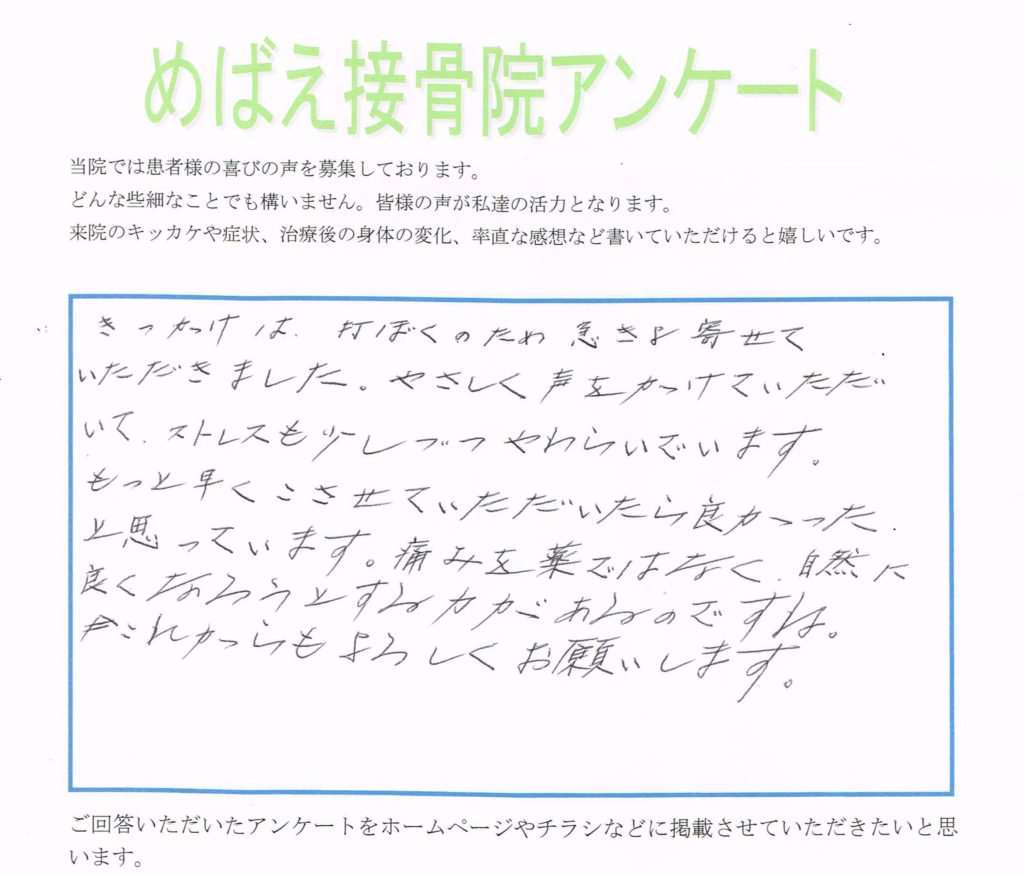 めばえ接骨院アンケート
当院では患者様の喜びの声を募集しております。
どんな些細なことでも構いません。皆様の声が私達の活力となります。
来院のキッカケや症状、治療後の身体の変化、率直な感想など書いていただけると嬉しいです。
きっかけは、打ぼくのため 急きょ寄せて
いただきました。やさしく声をかけていただ
いて、ストレスも少しづつやわらいでいます。
もっと早くこさせていただいたら良かった、
と思っています。痛みを薬ではなく、自然に
良くなろうとする力があるのですね。
これからもよろしくお願いします。
ご回答いただいたアンケートをホームページやチラシなどに掲載させていただきたいと思
います。